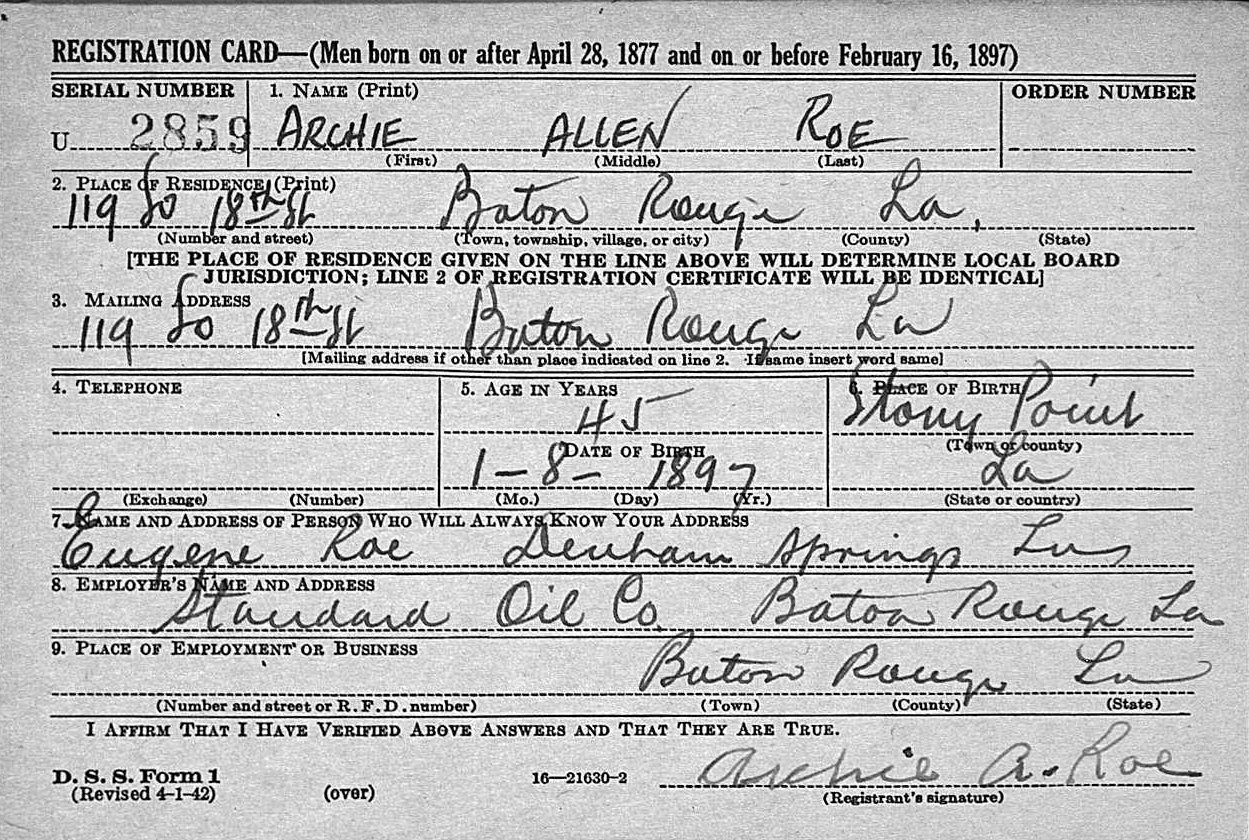 REGISTRATION CARD—(Men born on or after April 28, 1877 and on or before February 16, 1897)
SERIAL NUMBER 1. NAME (Print) ORDER NUMBER
U 2859 ARCHIE ALLEN ROE
(First) (Middle) (Last)
2. PLACE OF RESIDENCE (Print)
119 So 18th St Baton Rouge La,
(Number and street) (Town, township, village, or city) (County) (State)
[THE PLACE OF RESIDENCE GIVEN ON THE LINE ABOVE WILL DETERMINE LOCAL BOARD
JURISDICTION; LINE 2 OF REGISTRATION CERTIFICATE WILL BE IDENTICAL]
3. MAILING ADDRESS
119 So 18th St Baton Rouge La
[Mailing address if other than place indicated on line 2. If same insert word same]
4. TELEPHONE 5. AGE IN YEARS 6. PLACE OF BIRTH
45 Stony Point
DATE OF BIRTH (Town or county)
1-8-1897 La
(Exchange) (Number) (Mo.) (Day) (Yr.) (State or country)
7. NAME AND ADDRESS OF PERSON WHO WILL ALWAYS KNOW YOUR ADDRESS
Eugene Roe Denham Springs La
8. EMPLOYER'S NAME AND ADDRESS
Standard Oil Co. Baton Rouge La
9. PLACE OF EMPLOYMENT OR BUSINESS
Baton Rouge La
(Number and street or R. F. D. number) (Town) (County) (State)
I AFFIRM THAT I HAVE VERIFIED ABOVE ANSWERS AND THAT THEY ARE TRUE.
Archie A. Roe
D. S. S. Form 1 16—21630-2
(Revised 4-1-42) (over) (Registrant's signature)